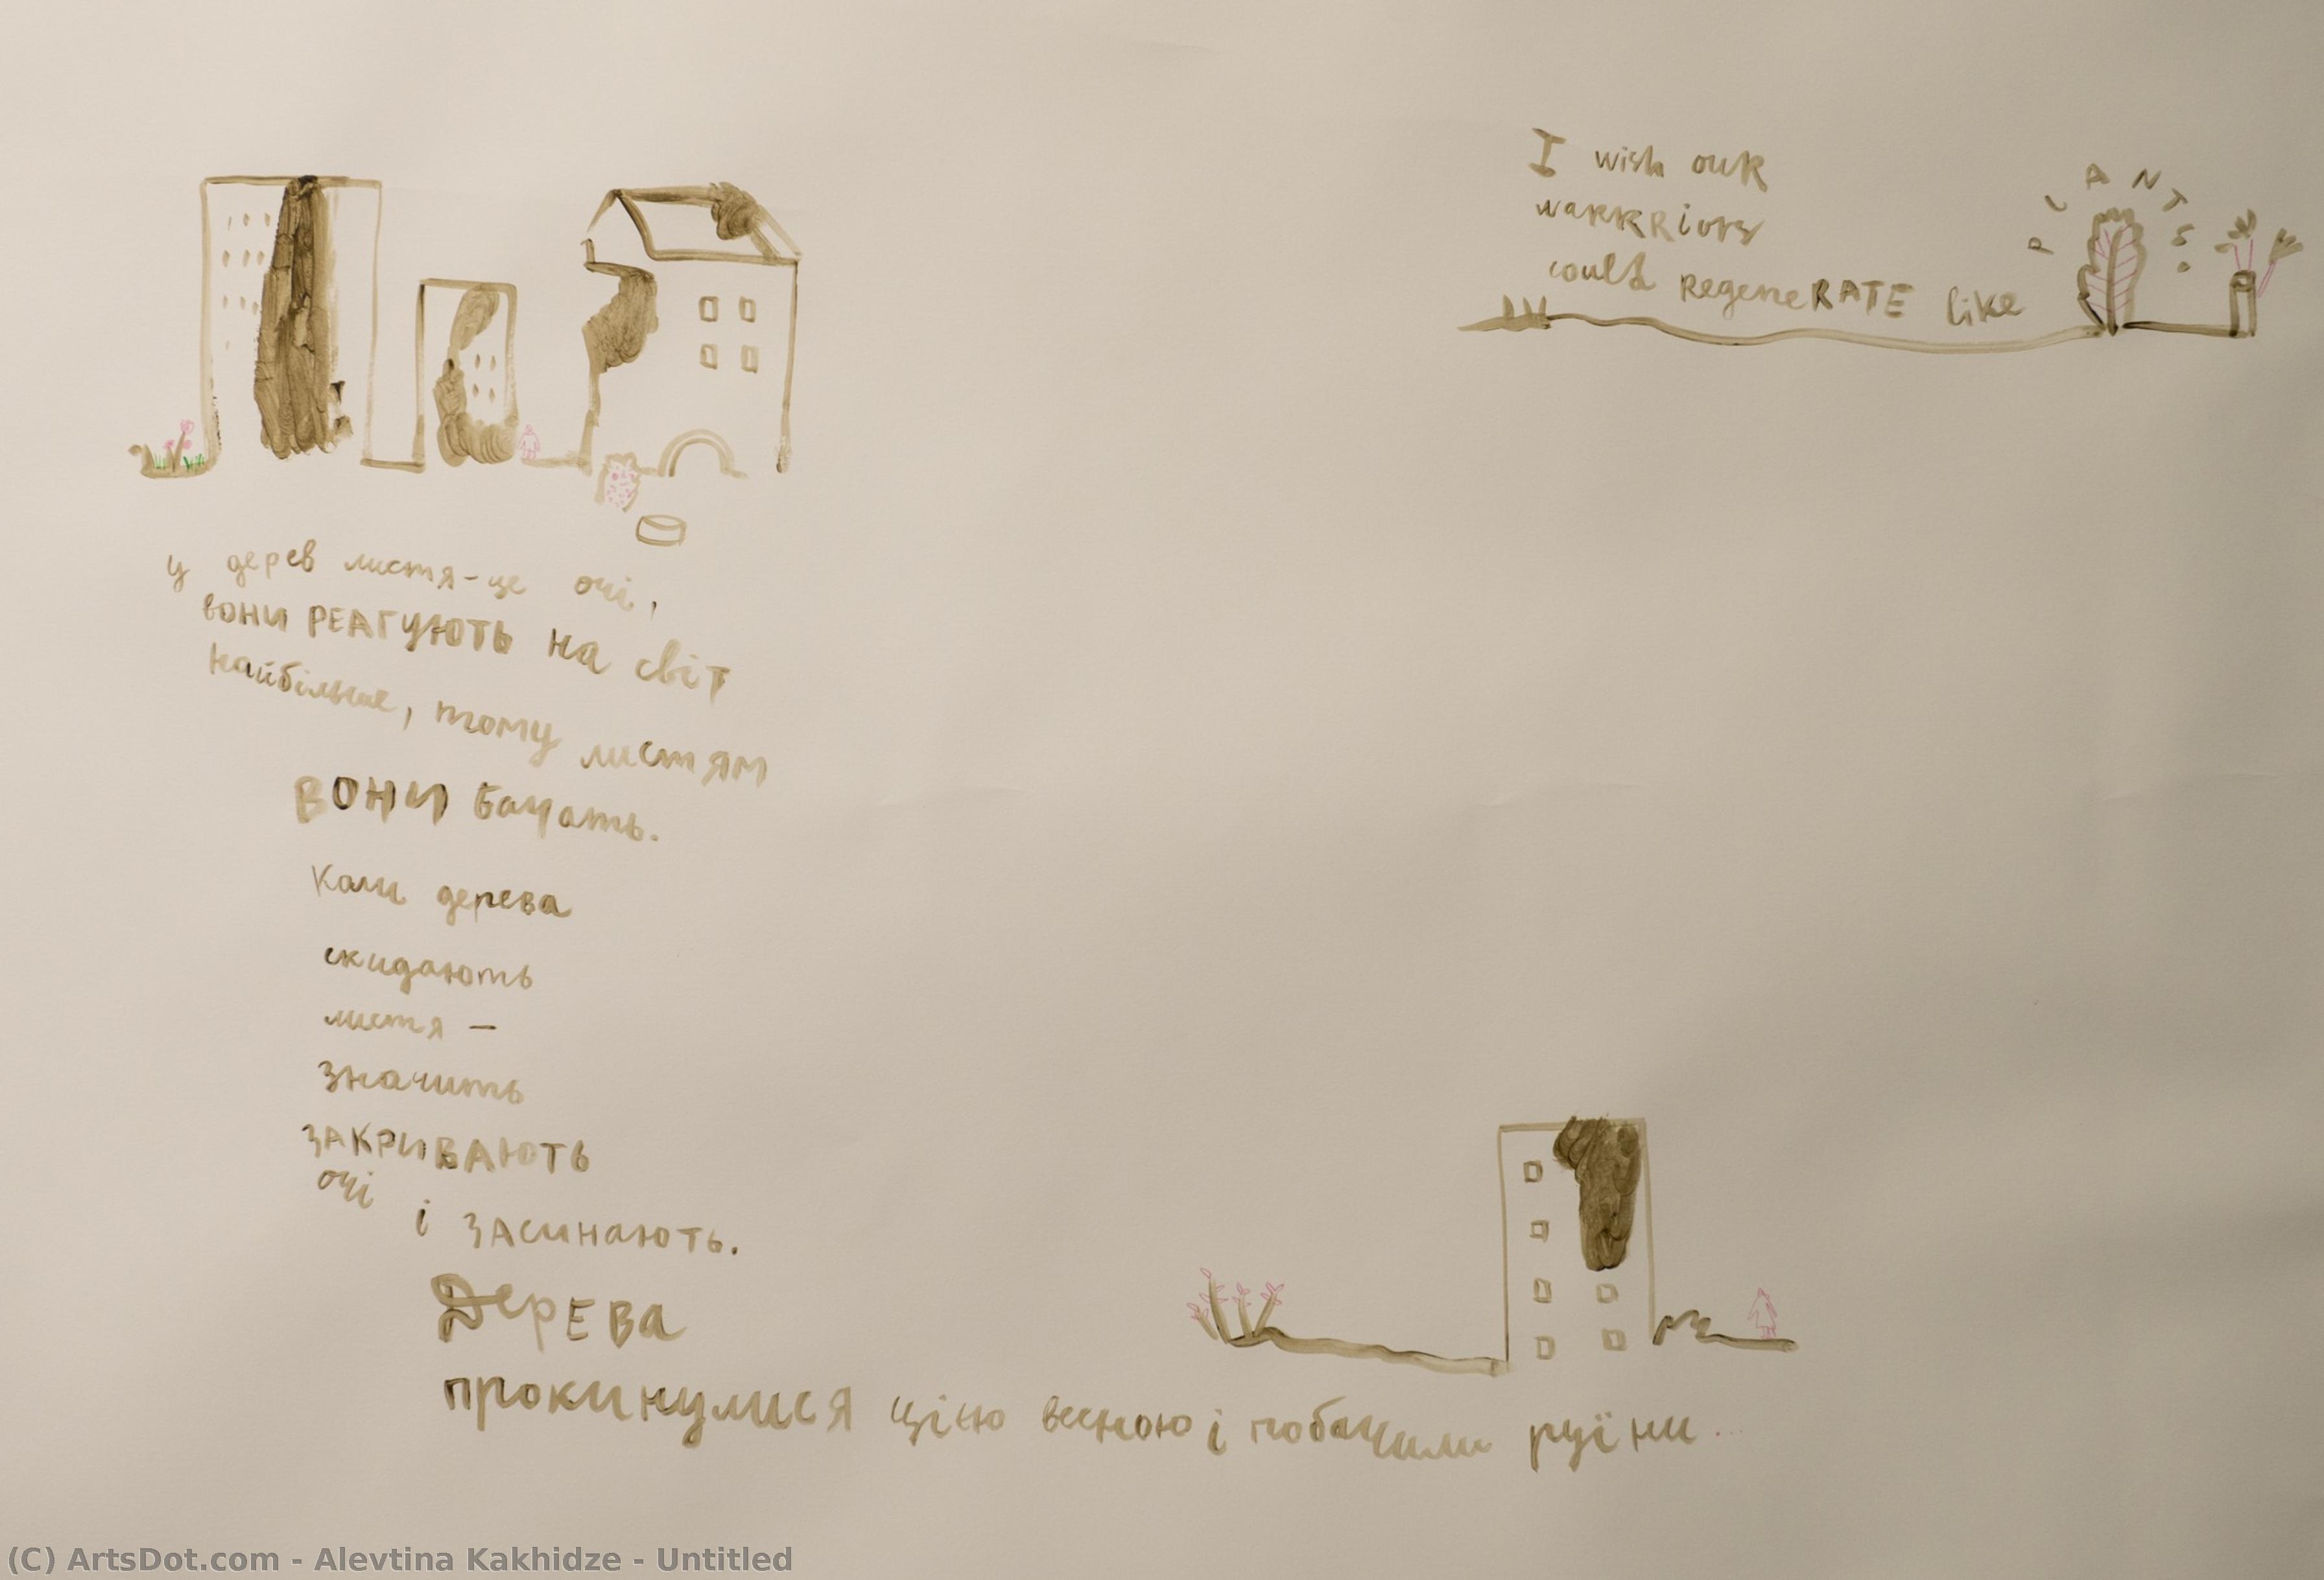 I wish our
warrriors
could RegeneRATE like
PLANTS.
у дерев листя-це очі,
вони РЕАГУЮТЬ на світ
найбільше, тому листям
ВОНИ бачать.
Коли дерева
скидають
листя —
значить
ЗАКРИВАЮТЬ
очі
і ЗАСИНАЮТЬ.
ДерЕВа
прокинулися цією весною і побачили руїни...
(C) ArtsDot.com - Alevtina Kakhidze - Untitled